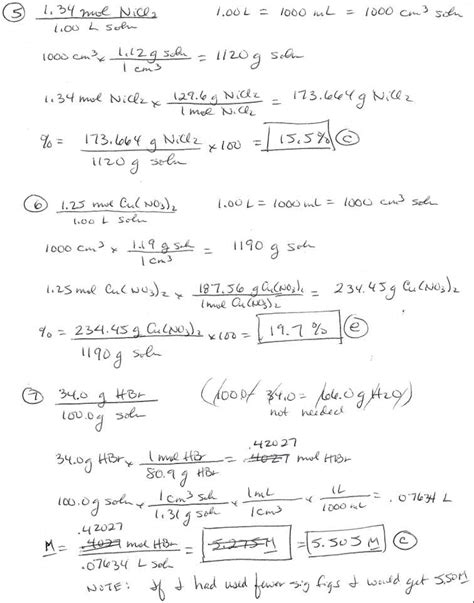 ⑤ 1.34 mol NiCl2 / 1.00 L soln   1.00 L = 1000 mL = 1000 cm³ soln
1000 cm³ x 1.12 g soln / 1 cm³ = 1120 g soln
1.34 mol NiCl2 x 129.6 g NiCl2 / 1 mol NiCl2 = 173.664 g NiCl2
% = 173.664 g NiCl2 / 1120 g soln x 100 = 15.5% ⓒ
⑥ 1.25 mol Cu(NO3)2 / 1.00 L soln   1.00 L = 1000 mL = 1000 cm³ soln
1000 cm³ x 1.19 g soln / 1 cm³ = 1190 g soln
1.25 mol Cu(NO3)2 x 187.56 g Cu(NO3)2 / 1 mol Cu(NO3)2 = 234.45 g Cu(NO3)2
% = 234.45 g Cu(NO3)2 / 1190 g soln x 100 = 19.7 % ⓔ
⑦ 34.0 g HBr / 100.0 g soln   (100.0 - 34.0 = 66.0 g H2O)
not needed
.42027
34.0 g HBr x 1 mol HBr / 80.9 g HBr = .4027 mol HBr
100.0 g soln x 1 cm³ soln / 1.31 g soln x 1 mL / 1 cm³ x 1 L / 1000 mL = .07634 L
.42027
M = .4027 mol HBr / .07634 L soln = 5.275 M = 5.505 M ⓒ
NOTE: If I had used fewer sig figs I would get 5.50M